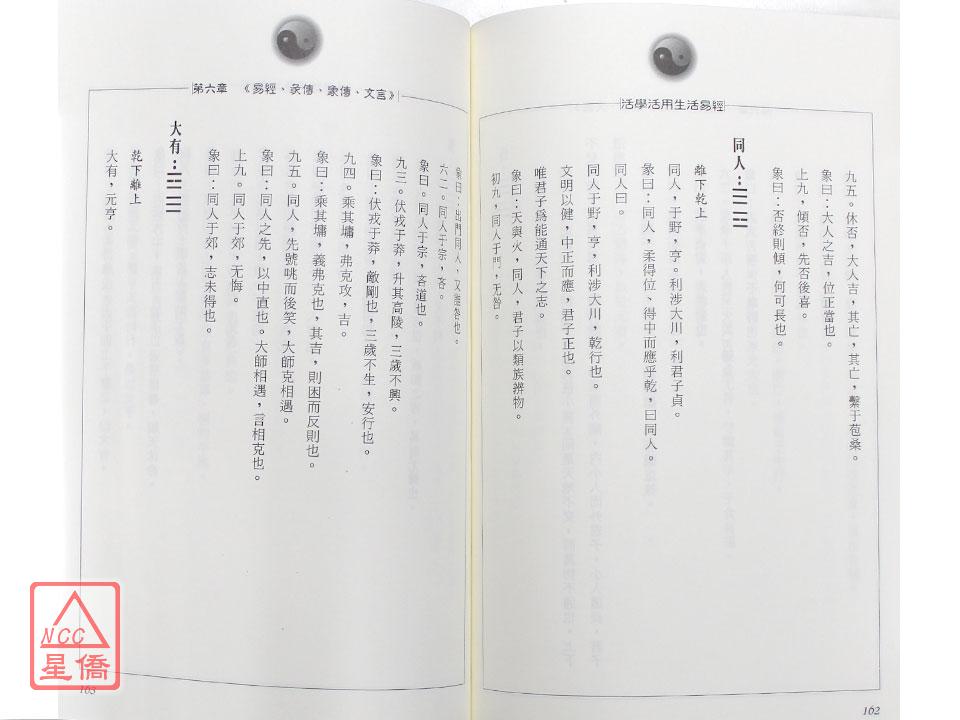 活學活用生活易經
九五。休否，大人吉，其亡，其亡，繫于苞桑。
象曰：大人之吉，位正當也。
上九，傾否，先否後喜。
象曰：否終則傾，何可長也。
同人：
離下乾上
同人，于野，亨。利涉大川，利君子貞。
彖曰：同人，柔得位、得中而應乎乾，曰同人。
同人曰。
同人于野，亨，利涉大川，乾行也。
文明以健，中正而應，君子正也。
唯君子為能通天下之志。
象曰：天與火，同人，君子以類族辨物。
初九，同人于門，无咎。
162
第六章　《易經、彖傳、象傳、文言》
象曰：出門同人，又誰咎也。
六二。同人于宗，吝。
象曰。同人于宗，吝道也。
九三。伏戎于莽，升其高陵，三歲不興。
象曰：伏戎于莽，敵剛也，三歲不生，安行也。
九四。乘其墉，弗克攻，吉。
象曰：乘其墉，義弗克也，其吉，則困而反則也。
九五。同人，先號咷而後笑，大師克相遇。
象曰：同人之先，以中直也。大師相遇，言相克也。
上九。同人于郊，无悔。
象曰：同人于郊，志未得也。
大有：
乾下離上
大有，元亨。
163
NCC
星僑